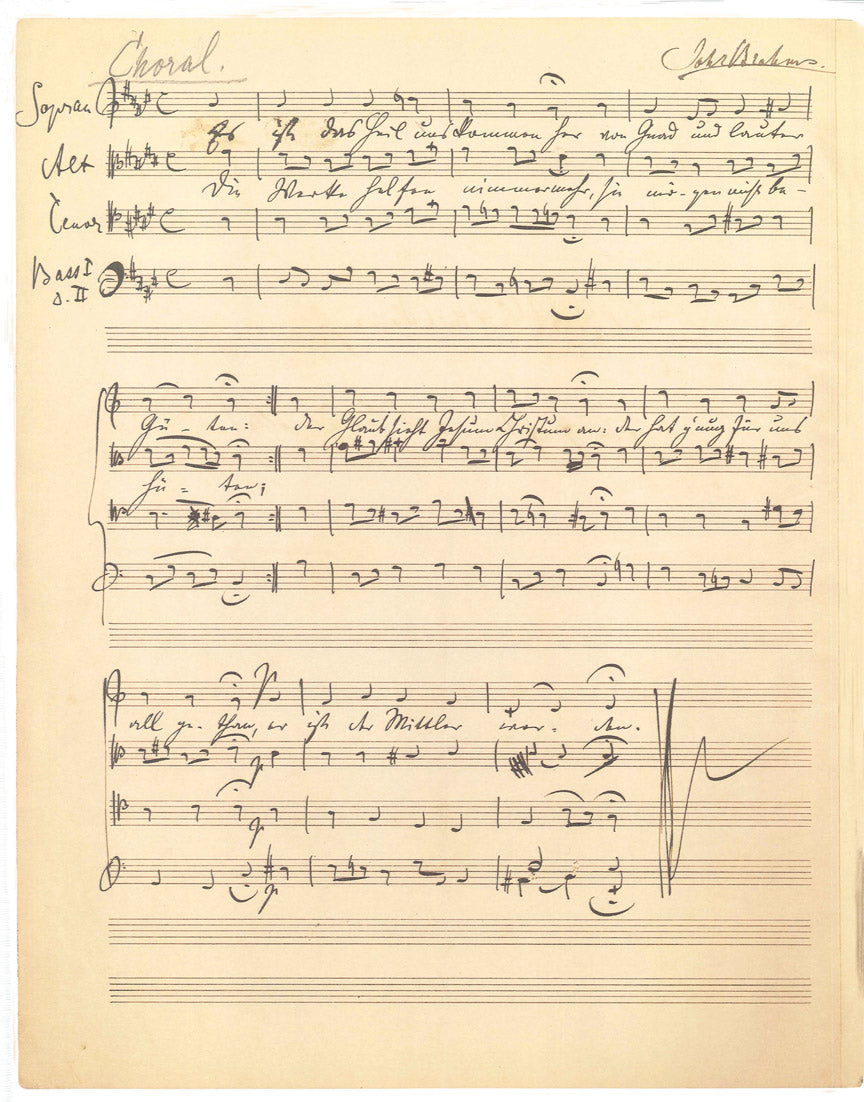 Choral. Johs Brahms.
Sopran
Es ist das Heil uns kommen her von Gnad und lauter
Alt
Die Werke helfen nimmermehr, sie mögen nicht be-
Tenor
Bass I
u. II
Gü - ten: der Glaub sieht Jesum Christum an: der hat gnug für uns
hü - ten;
all ge- than, er ist der Mittler wor - den.
p
p
p
p